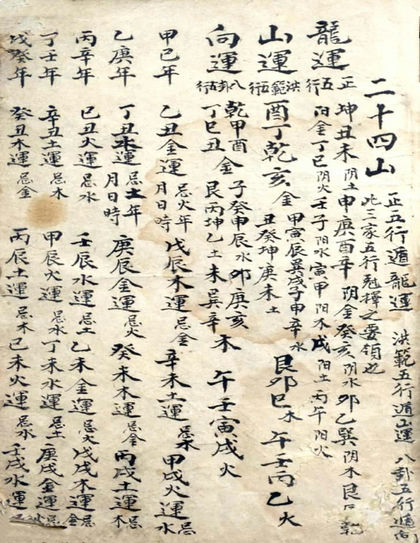 二十四山 正五行遁龍運 洪範五行遁山運 八卦五行遁向
此三家五行剋擇之要領也
龍運 正五行 坤丑未陰土申庚酉辛陰金癸亥陰水卯乙巽陰木艮
陽金丁巳陰火壬子陽水寅甲陽木戌陽土丙午陽火
山運 洪範五行 酉丁乾亥金 甲寅辰巽戌子申辛水 艮卯巳木 午壬丙乙火
丑癸坤庚未土
向運 八卦五行 乾甲酉金 子癸申辰水卯庚亥
丁巳丑 艮丙坤乙土未巽辛木 午壬寅戌火
甲巳年 乙丑金運忌火年月日時 戊辰木運忌金 辛未土運忌木 甲戌火運忌水
乙庚年 丁丑水運忌土年月日時 庚辰金運忌火 癸未木運忌金 丙戌土運忌木
丙辛年 巳丑火運忌水 壬辰水運忌土 乙未金運忌火 戊戌木運忌金
丁壬年 辛丑土運忌木 甲辰火運忌水 丁未水運忌土 庚戌金運忌
戊癸年 癸丑木運忌金 丙辰土運忌木 巳未火運忌水 壬戌水運